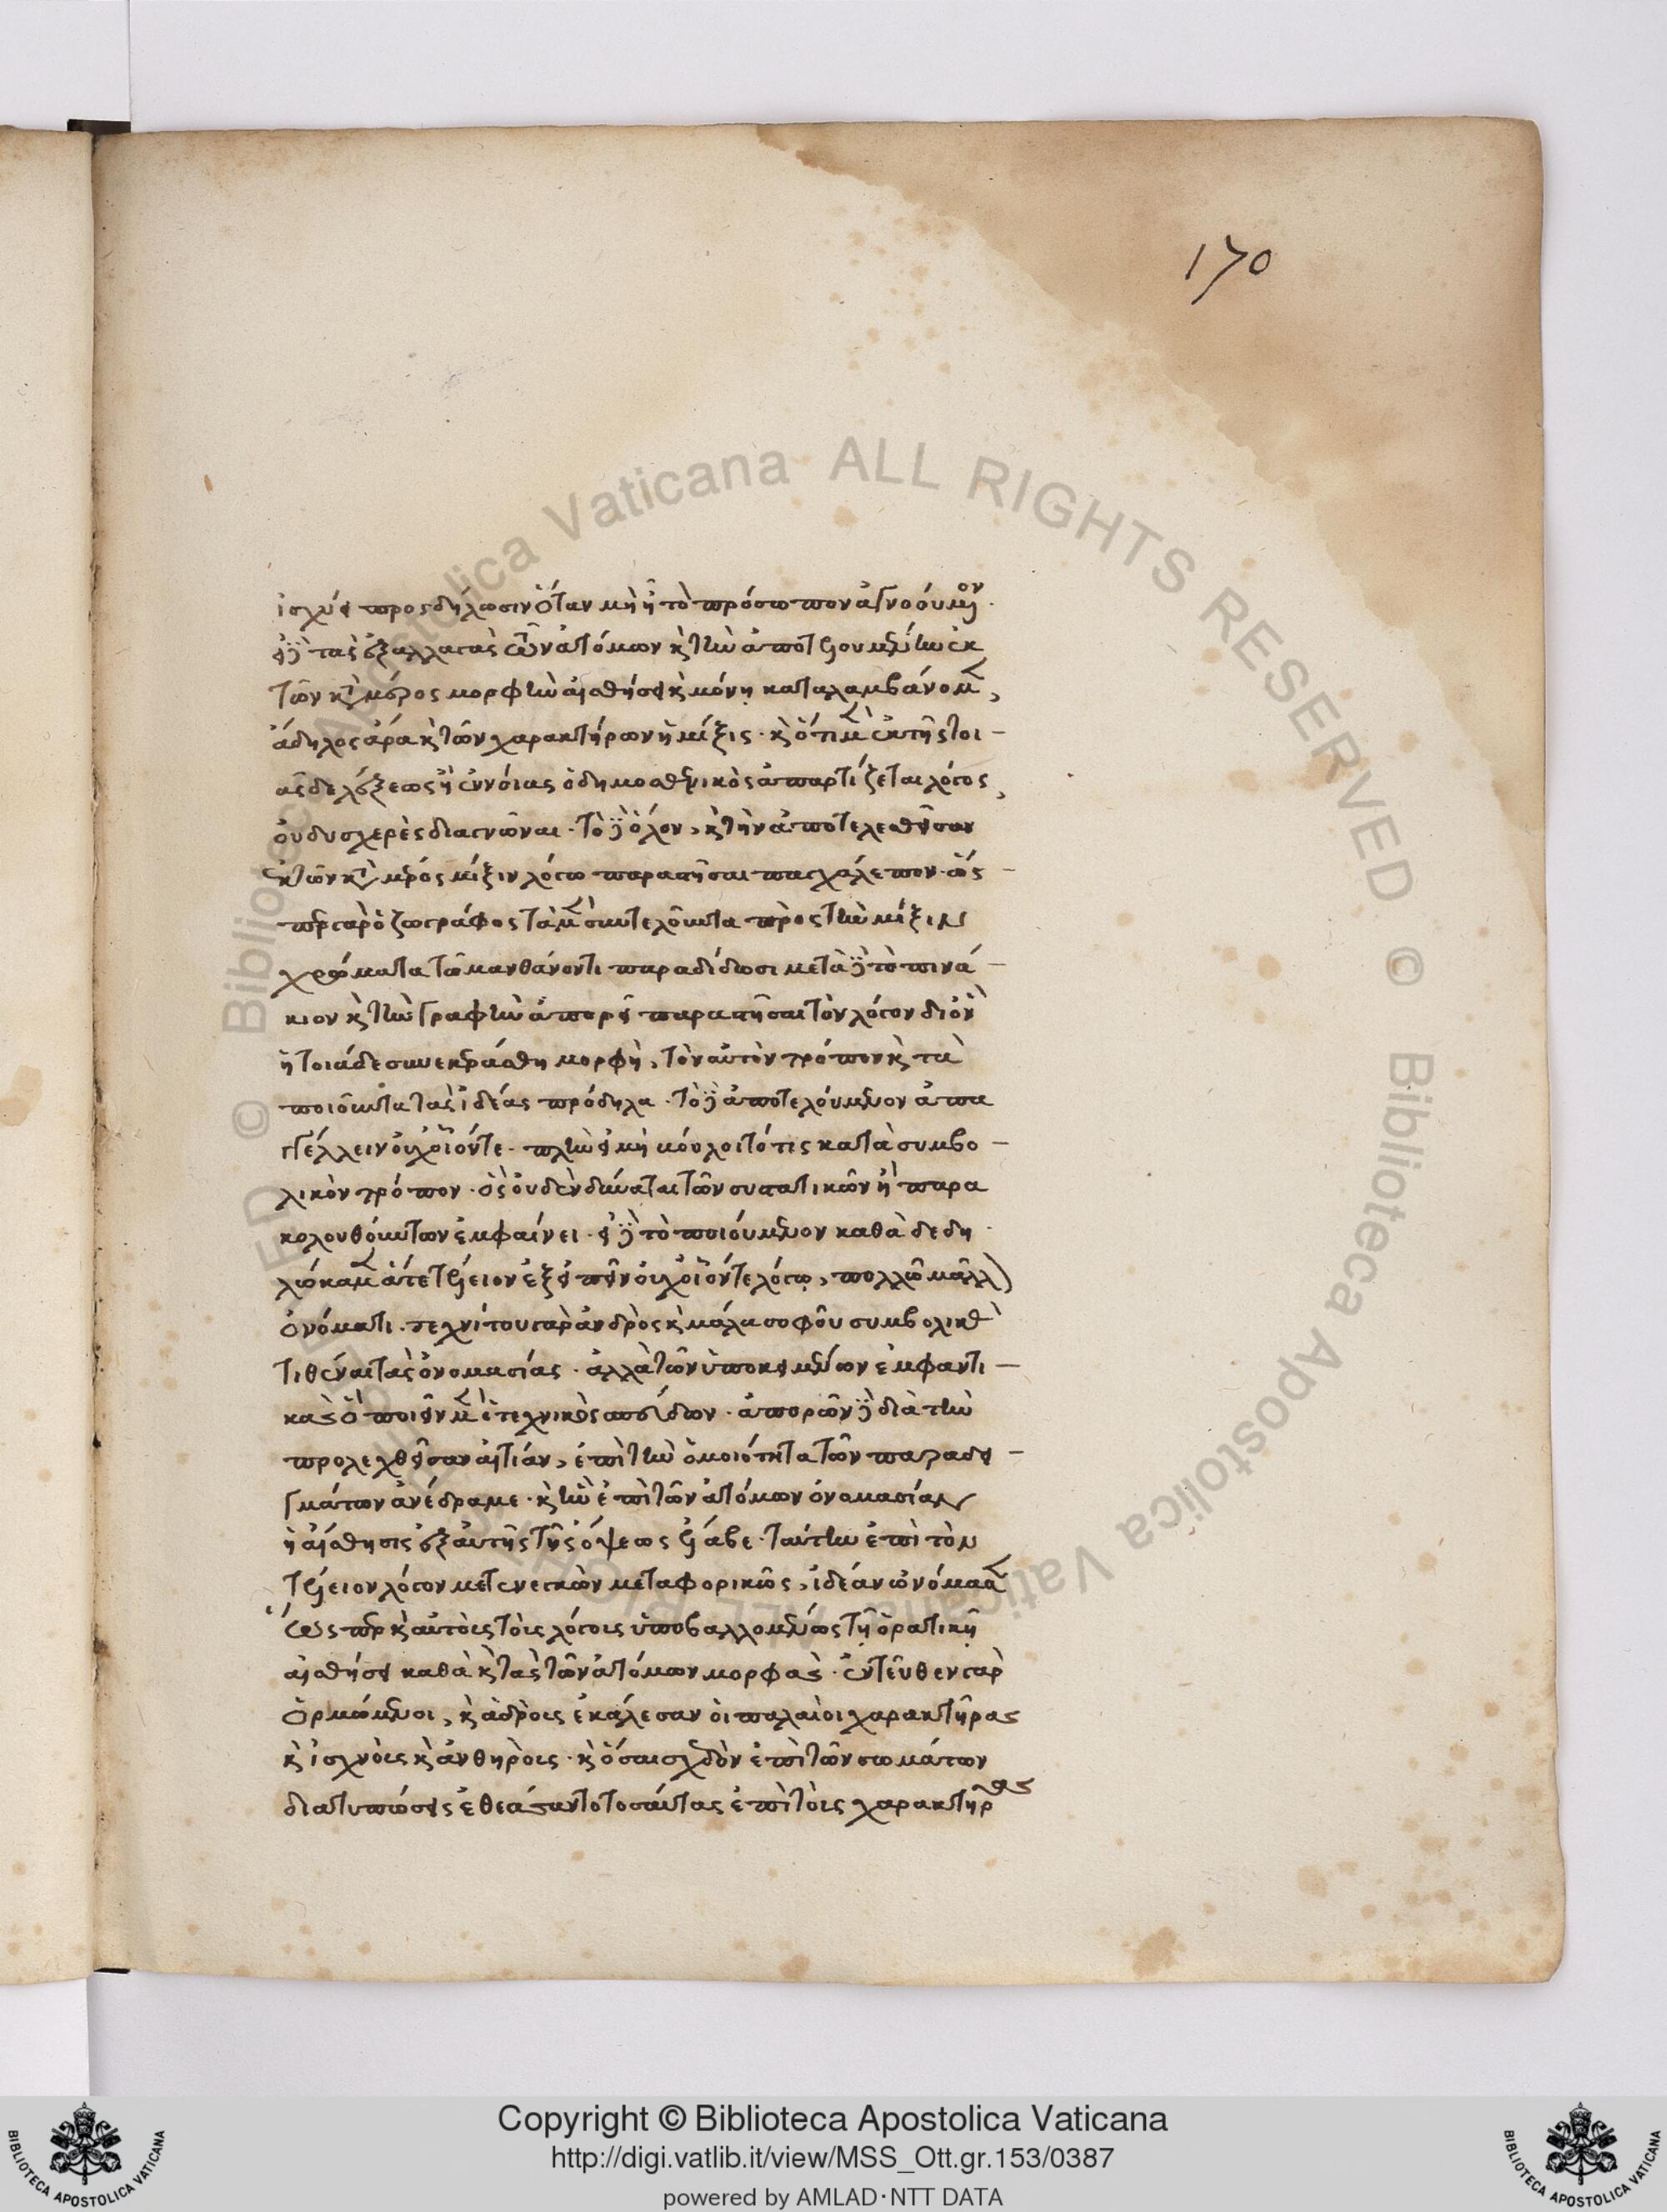 170
ἰσχύει προς δήλωσιν ὅταν μὴ ᾖ τὸ πρόσωπον ἀγνοούμενον.
εἰ δὲ τὰς ἐξαλλαγὰς τῶν ἀτόμων καὶ τὴν ἀποτελουμένην ἐκ
τῶν κατὰ μέρος μορφὴν αἰσθήσει καὶ μόνῃ καταλαμβάνομεν,
ἄδηλος ἄρα καὶ τῶν χαρακτήρων ἡ μίξις. καὶ ὅτι μὲν ἐκ τῆς τοι-
ᾶσδε λέξεως ἢ ἐννοίας ὁ δημοσθενικὸς ἀπαρτίζεται λόγος,
οὐ δυσχερὲς διαγνῶναι. τὸ δὲ ὅλον, καὶ τὴν ἀποτελεσθεῖσαν
ἐκ τῶν κατὰ μέρος μίξιν λόγω παραστῆσαι παγχάλεπον. ὥς-
περ γὰρ ὁ ζωγράφος τὰ μὲν συντελοῦντα πρὸς τὴν μίξιν
χρώματα τῶ μανθάνοντι παραδίδωσι μετὰ δὲ τὸ πινά-
κιον καὶ τὴν γραφὴν ἀπορεῖ παραστῆσαι τὸν λόγον δι ὃν
ἡ τοιάδε συνεκράθη μορφὴ, τὸν αὐτὸν τρόπον καὶ τὰ
ποιοῦντα τὰς ἰδέας πρόδηλα. τὸ δὲ ἀποτελούμενον ἀπα
γγέλλειν οὐχ οἷόν τε. πλὴν εἰ μὴ μόνον λέγοι τό τις κατὰ συμβο-
λικὸν τρόπον. ὃς οὐδὲν δύναται τῶν συστατικῶν ἢ παρα
κολουθούντων ἐμφαίνει. εἰ δὲ τὸ ποιούμενον καθὰ δεδη
λώκαμεν ἅτε τέλειον ἐξειπεῖν οὐχ οἷόν τε λόγῳ, πολλῶ μᾶλλον
ὀνόματι. τεχνίτου γὰρ ἀνδρὸς καὶ μάλα σοφοῦ συμβολικὰς
τιθέναι τὰς ὀνομασίας. ἀλλὰ τῶν ὑποκειμένων ἐμφαντι-
κὰς ὃ ποιεῖν μὲν ὁ τεχνικὸς σπεύδων. ἀπορῶν δὲ διὰ τὴν
προλεχθεῖσαν αἰτίαν, ἐπὶ τὴν ὁμοιότητα τῶν παραδει-
γμάτων ἀνέδραμε. καὶ ἣν ἐπὶ τῶν ἀτόμων ὀνομασίαν
ἡ αἴσθησις ἐξ αὐτῆς τῆς ὄψεως ἔλαβε. ταύτην ἐπὶ τὸν
τέλειον λόγον μετενεγκὼν μεταφορικῶς, ἰδέαν ὠνόμασεν
ὥςπερ καὶ αὐτοῖς τοῖς λόγοις ὑποβαλλομένως τῇ ὁρατικῇ
αἰσθήσει καθὰ καὶ τὰς τῶν ἀτόμων μορφὰς. ἐντεῦθεν γὰρ
ὁρμώμενοι, καὶ ἁδροὺς ἐκάλεσαν οἱ παλαιοὶ χαρακτῆρας
καὶ ἰσχνοὺς καὶ ἀνθηροὺς. καὶ ὅσας σχεδὸν ἐπὶ τῶν σωμάτων
διατυπώσεις ἐθεάσαντο τοσαύτας ἐπὶ τοὺς χαρακτῆρας
Copyright © Biblioteca Apostolica Vaticana
http://digi.vatlib.it/view/MSS_Ott.gr.153/0387
powered by AMLAD·NTT DATA
BIBLIOTECA APOSTOLICA VATICANA
BIBLIOTECA APOSTOLICA VATICANA
© Biblioteca Apostolica Vaticana ALL RIGHTS RESERVED
© Biblioteca Apostolica Vaticana ALL RIGHTS RESERVED